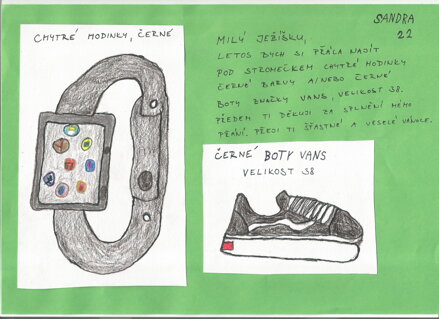 CHYTRÉ HODINKY, ČERNÉ
SANDRA
22
MILÝ JEŽÍŠKU,
LETOS BYCH SI PŘÁLA NAJÍT
POD STROMEČKEM CHYTRÉ HODINKY
ČERNÉ BARVY A/NEBO ČERNÉ
BOTY ZNAČKY VANS, VELIKOST 38.
PŘEDEM TI DĚKUJI ZA SPLNĚNÍ MÉHO
PŘÁNÍ. PŘEJI TI ŠŤASTNÉ A VESELÉ VÁNOCE.
ČERNÉ BOTY VANS
VELIKOST 38